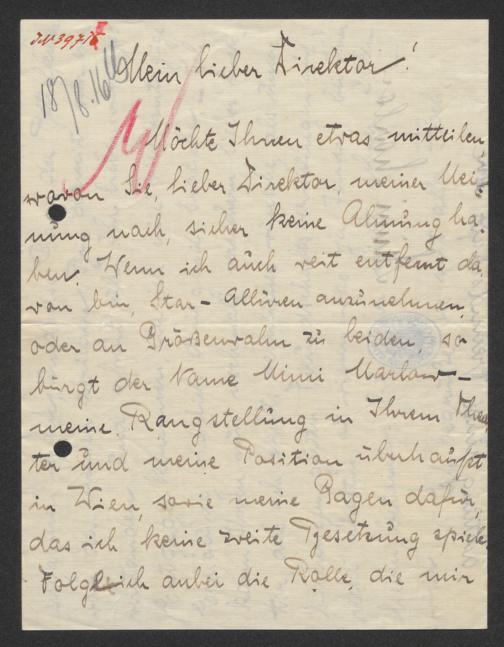 IN 3971
18/8.16
Mein lieber Direktor!
Möchte Ihnen etwas mitteilen
wovon Sie, lieber Direktor, meiner Mei-
nung nach, sicher keine Ahnung ha-
ben. Wenn ich auch weit entfernt da-
von bin, Star-Allüren anzunehmen
oder an Größenwahn zu leiden, so
bürgt der Name Mimi Marlow-
meine Rangstellung in Ihrem Thea-
ter und meine Position überhaupt
in Wien, sowie meine Gagen dafür,
das ich keine zweite Besetzung spiele
Folglich anbei die Rolle, die mir